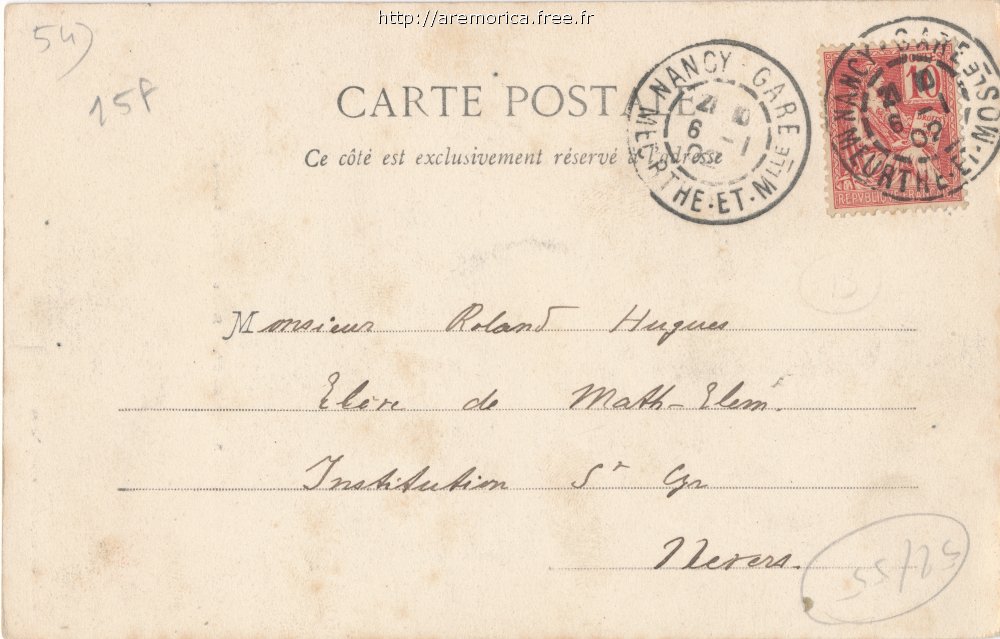 http://aremorica.free.fr
54)
15F
CARTE POSTALE
Ce côté est exclusivement réservé à l'adresse
NANCY · GARE
6 1
02
MEURTHE · ET · MLLE
NANCY · GARE
10
6 1
02
MEURTHE · ET · MOSLE
REPVBLIQVE FRANÇAISE
Monsieur Roland Hugues
Elève de Math-Elem.
Institution St Cyr
Nevers.